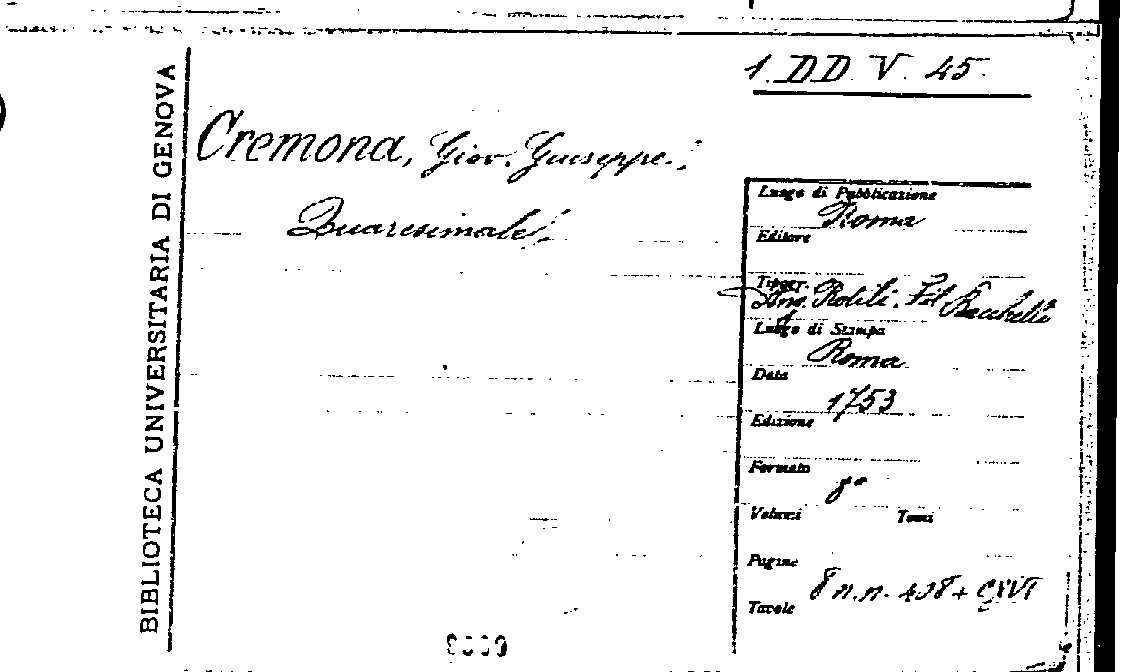 BIBLIOTECA UNIVERSITARIA DI GENOVA
1. DD. V. 45.
Cremona, Giov. Giuseppe.:
Quaresimale.
Luogo di Pubblicazione
Roma
Editore
Tipogr.
Ang. Rotili. Fil Bacchelli
Luogo di Stampa
Roma
Data
1753
Edizione
Formato
8°
Volumi Tomi
Pagine
8 n.n. 408 + CXVI
Tavole